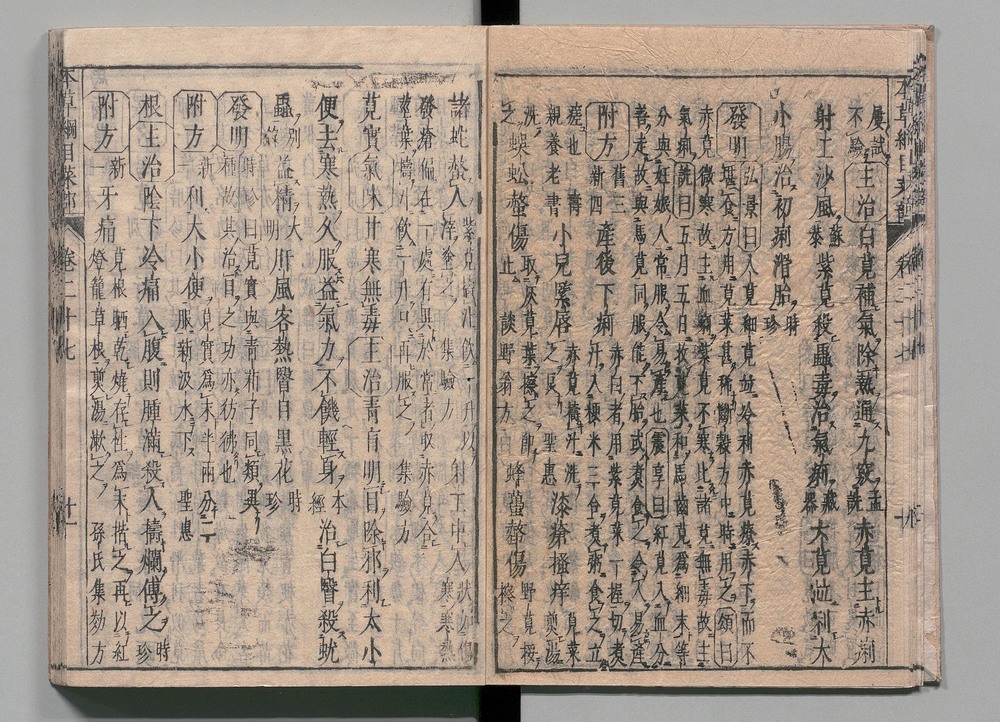 屢試不驗 主治 白莧補氣除熱通九竅 孟詵 赤莧主赤痢
射工沙風 蘇恭 紫莧殺蟲毒治氣痢 藏器 六莧並利大
小腸治初痢滑胎 時珍
發明 弘景曰人莧細莧並冷利赤莧療赤下而不
堪食方用莧菜甚稀斷穀方中時用之頌曰
赤莧微寒故主血痢紫莧不寒比諸莧無毒故主
氣痢詵曰五月五日收莧菜和馬齒莧爲細末等
分與妊娠人常服令易產也震亨曰紅莧入血分
善走故與馬莧同服能下胎或煮食之令人易產
附方 舊三新四 產後下痢 赤白者用紫莧菜一握切煮汁入粳米三合煮粥食之立
瘥也 壽親養老書 小兒緊唇 赤莧擣汁洗之良 聖惠 漆瘡搔痒 莧菜煎湯
洗之 蜈蚣螫傷 取灰莧葉擦之即止 談野翁方 蜂蠆螫傷 野莧挼擦之
諸蛇螫人 紫莧擣汁飲一升以滓塗之 集驗方 射工中人 狀如傷寒寒熱
發瘡偏在一處有異於常者取赤莧合莖葉擣汁飲一升日再服之 集驗方
莧實氣味甘寒無毒主治青盲明目除邪利大小
便去寒熱久服益氣力不饑輕身 本經 治白瞖殺蚘
蟲 別錄 益精 大明 肝風客熱瞖目黑花 時珍
發明 時珍曰莧實與青葙子同類異
種故其治目之功亦彷彿也
附方 新一 利大小便 莧實爲末半兩分二服新汲水下 聖惠
根主治陰下冷痛入腹則腫滿殺人擣爛傅之 時珍
附方 新一 牙痛 莧根晒乾燒存性爲末揩之再以紅燈籠草根煎湯漱之 孫氏集効方
本草綱目菜部 卷二十七 十一